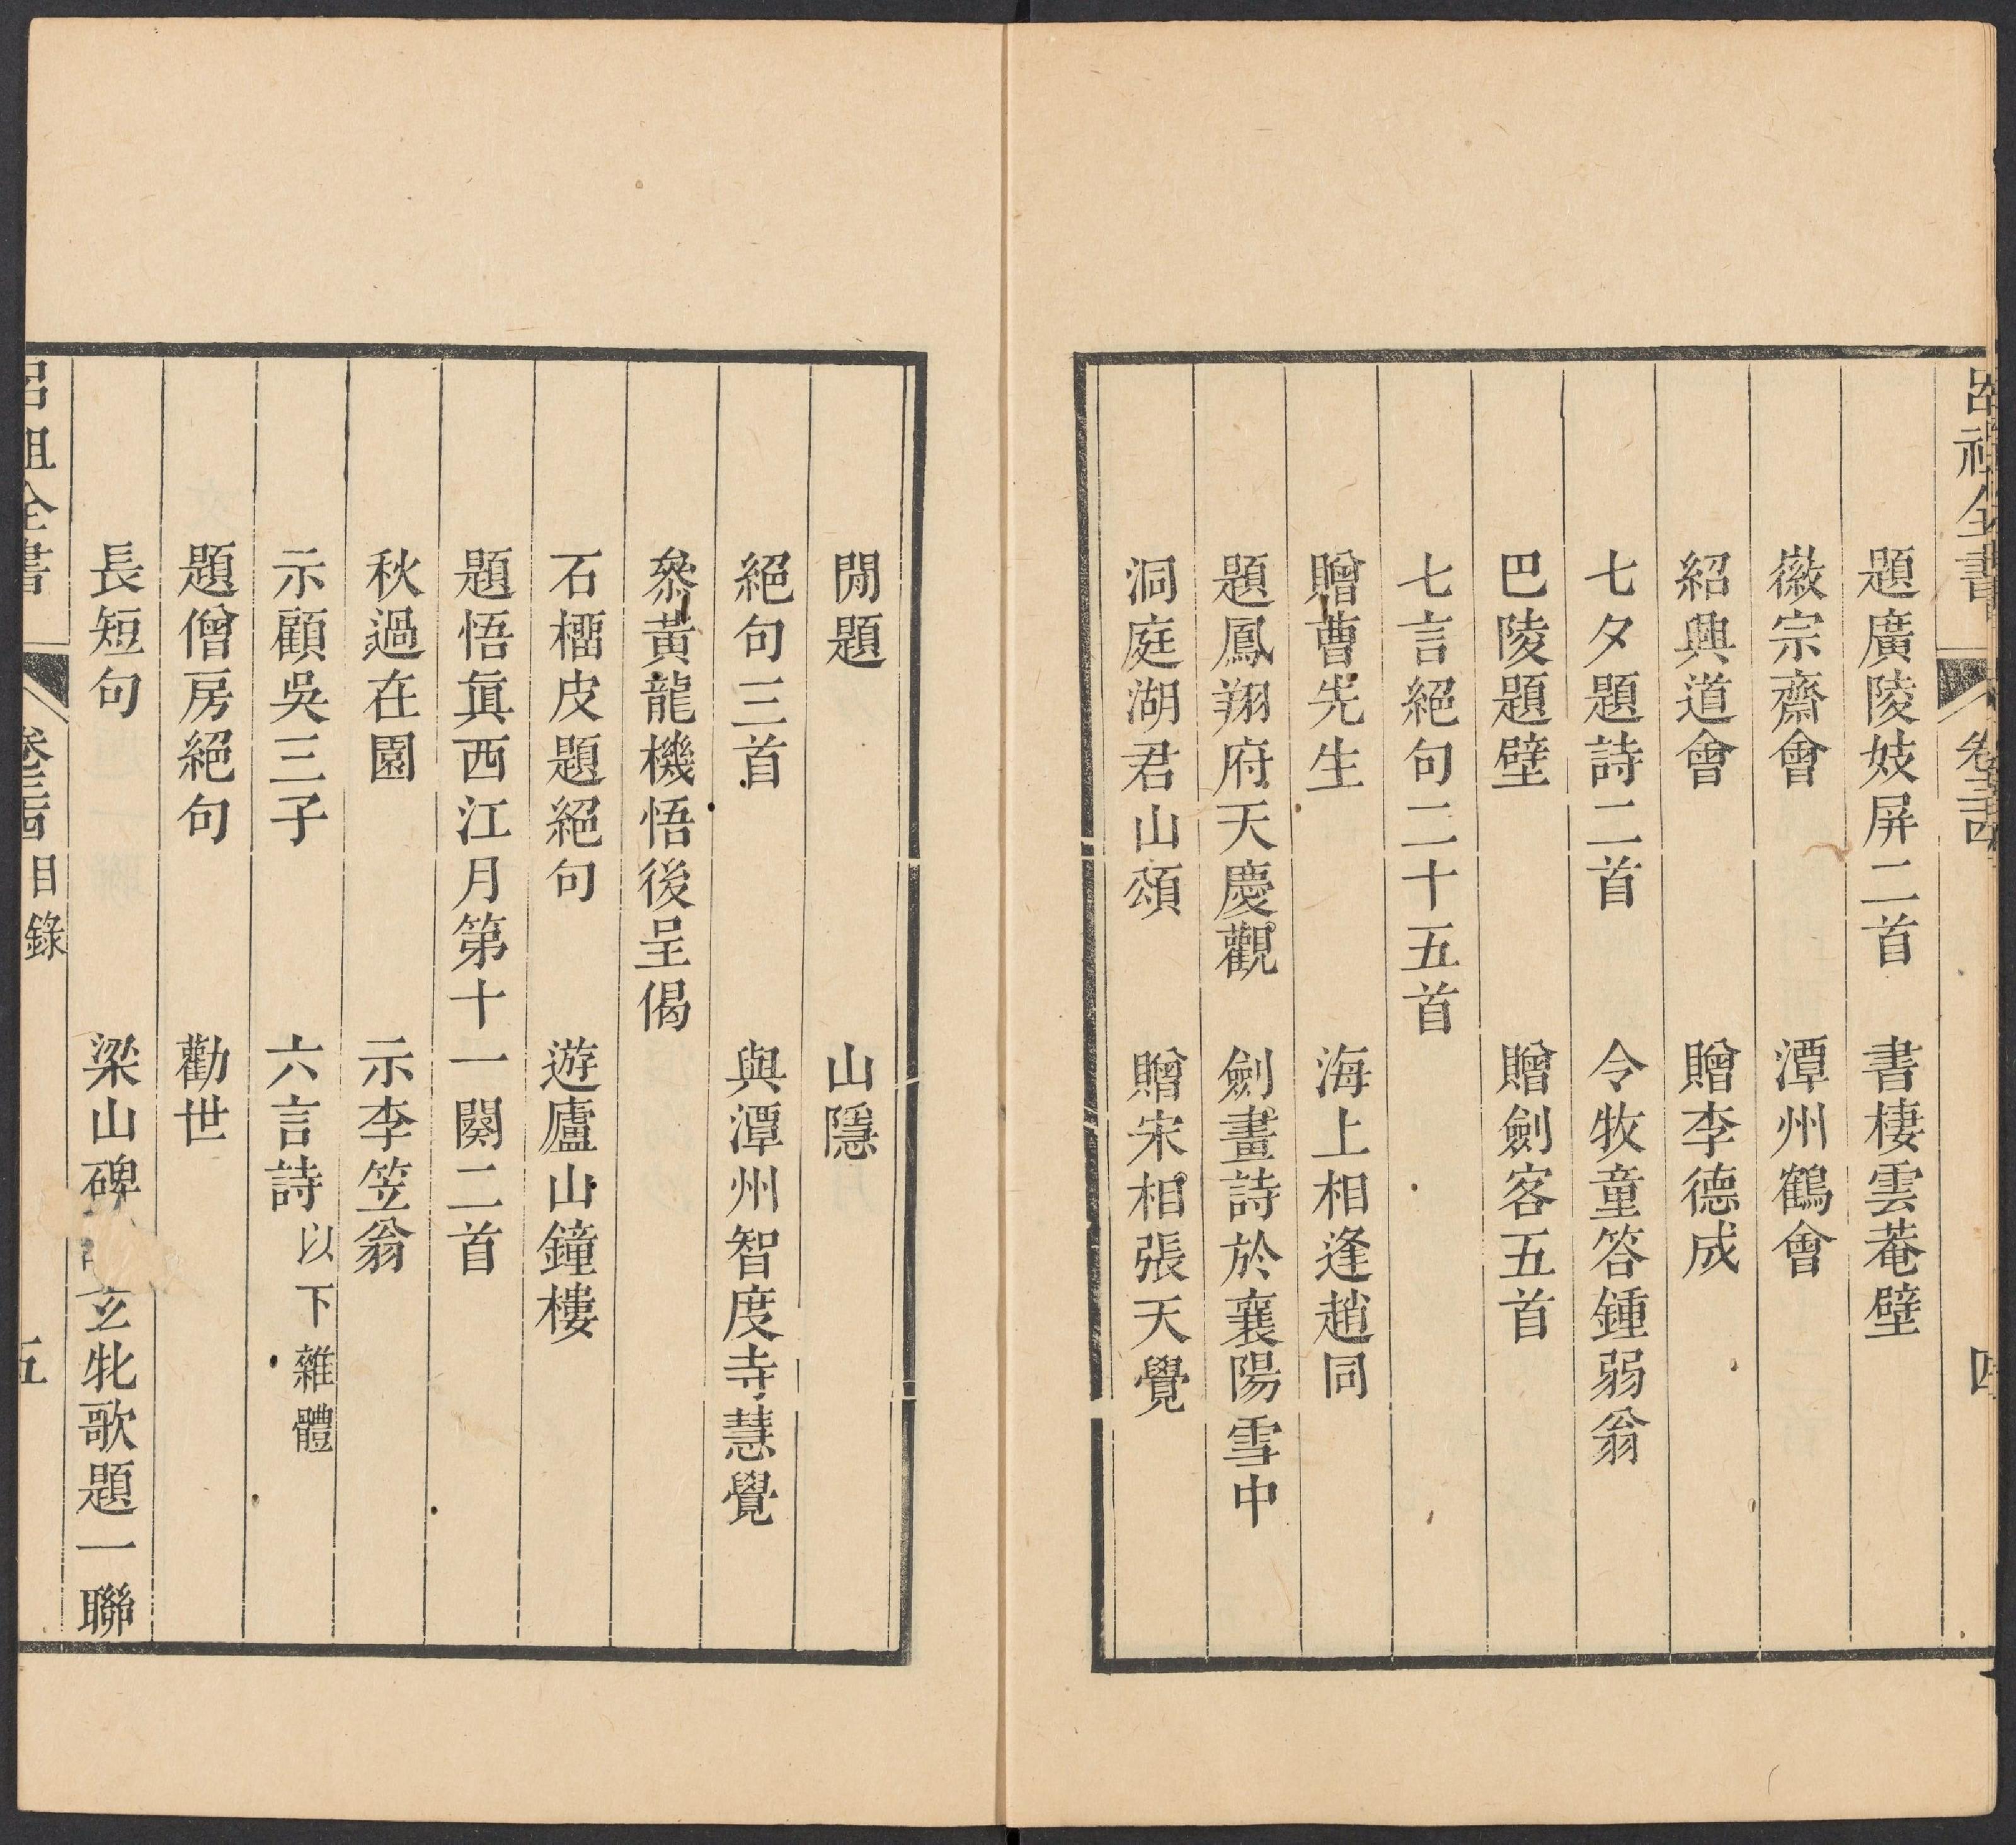 呂祖全書 卷三十四 四
題廣陵妓屏二首 書棲雲菴壁
徽宗齋會 潭州鶴會
紹興道會 贈李德成
七夕題詩二首 令牧童答鍾弱翁
巴陵題壁 贈劍客五首
七言絕句二十五首
贈曹先生 海上相逢趙同
題鳳翔府天慶觀 劍畫詩於襄陽雪中
洞庭湖君山頌 贈宋相張天覺
閒題 山隱
絕句三首 與潭州智度寺慧覺
叅黃龍機悟後呈偈
石榴皮題絕句 遊廬山鐘樓
題悟眞西江月第十一闋二首
秋過在園 示李笠翁
示顧吳三子 六言詩 以下雜體
題僧房絕句 勸世
長短句 梁山碑 玄牝歌題一聯
呂祖全書 卷三十四目錄 五